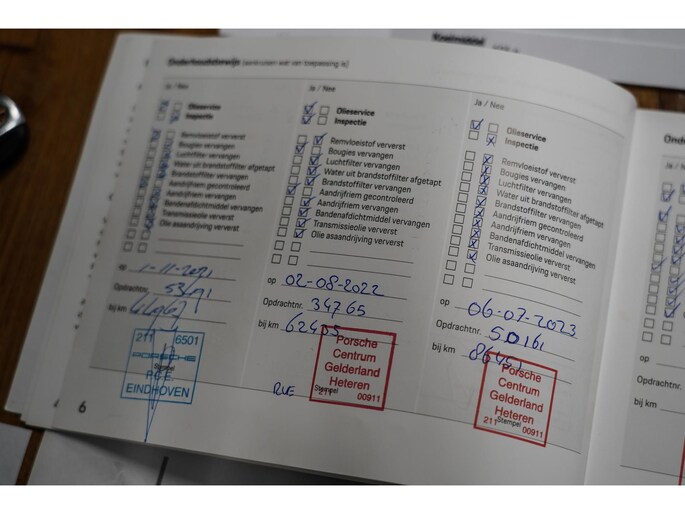 Onderhoudsbewijs (aankruisen wat van toepassing is)
Ja / Nee
Olieservice
Inspectie
Remvloeistof ververst
Bougies vervangen
Luchtfilter vervangen
Water uit brandstoffilter afgetapt
Brandstoffilter vervangen
Aandrijfriem gecontroleerd
Aandrijfriem vervangen
Bandenafdichtmiddel vervangen
Transmissieolie ververst
Olie asaandrijving ververst
op 1-11-2021
Opdrachtnr.
bij km
211 6501
Stempel
EINDHOVEN
6
Ja / Nee
Olieservice
Inspectie
Remvloeistof ververst
Bougies vervangen
Luchtfilter vervangen
Water uit brandstoffilter afgetapt
Brandstoffilter vervangen
Aandrijfriem gecontroleerd
Aandrijfriem vervangen
Bandenafdichtmiddel vervangen
Transmissieolie ververst
Olie asaandrijving ververst
op 02-08-2022
Opdrachtnr. 34765
bij km
Porsche
Centrum
Gelderland
Heteren
Stempel
211 00911
Ja / Nee
Olieservice
Inspectie
Remvloeistof ververst
Bougies vervangen
Luchtfilter vervangen
Water uit brandstoffilter afgetapt
Brandstoffilter vervangen
Aandrijfriem gecontroleerd
Aandrijfriem vervangen
Bandenafdichtmiddel vervangen
Transmissieolie ververst
Olie asaandrijving ververst
op 06-07-2023
Opdrachtnr. 50161
bij km
Porsche
Centrum
Gelderland
Heteren
Stempel
211 00911
Ja / Nee
op
Opdrachtnr.
bij km